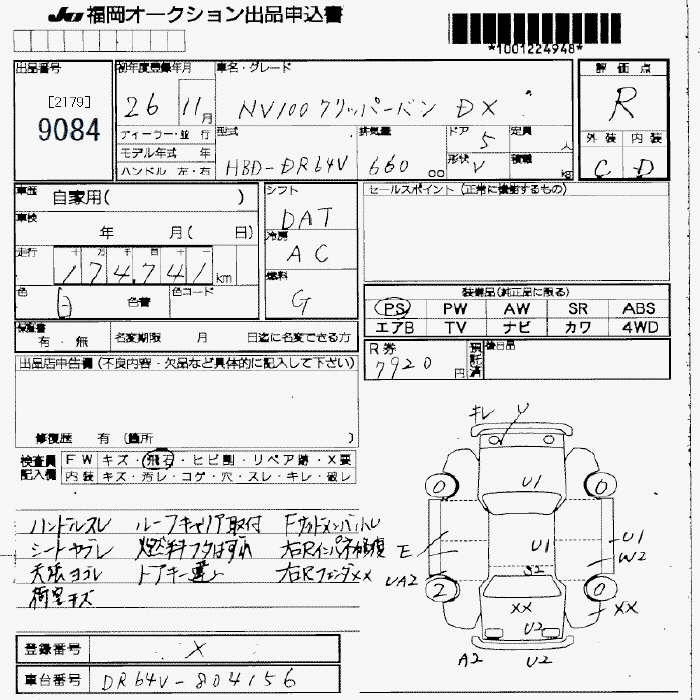 JU 福岡オークション出品申込書
*1001224948*
出品番号
[2179]
9084
初年度登録年月
26 11月
車名・グレード
NV100クリッパーバン DX
評価点
R
外装 内装
C D
ディーラー・並行
モデル年式 年
ハンドル 左・右
型式
HBD-DR64V
排気量
660 cc
ドア 5
形状 V
定員 人
積載 kg
車歴 自家用( )
車検 年 月( 日)
走行 十 万 千 百 十 一
174,741 km
色 白 色替
色コード
シフト
DAT
冷房
AC
燃料
G
セールスポイント (正常に機能するもの)
装備品(純正品に限る)
PS PW AW SR ABS
エアB TV ナビ カワ 4WD
保証書 有・無
名変期限 月 日迄に名変できる方
R券 7920円
預託済
後日品
出品店申告欄 (不良内容・欠品など具体的に記入して下さい)
修復歴 有 (箇所 )
検査員記入欄
FW キズ・飛石・ヒビ割・リペア跡・X要
内装 キズ・汚レ・コゲ・穴・スレ・キレ・破レ
ハンドルスレ ルーフキャリア取付
シートヤブレ 燃料フタはずれ 右Rインパネ修復
天張ヨゴレ トアキー違い 右RフェンダXX
荷室キズ
キレ U
0 0
U1
E U1 U1
W2
UA2 S2
2 0
XX XX
U2
A2 U2
登録番号 X
車台番号 DR64V-804156